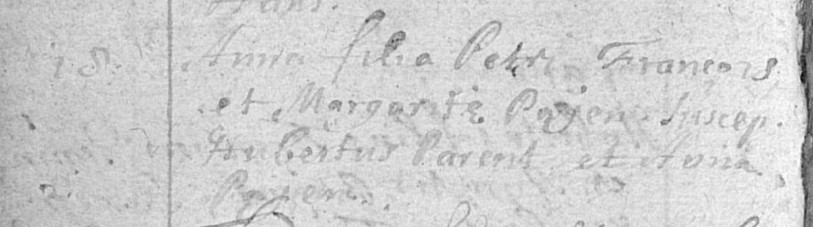 18. Anna filia Petri François
et Margaritę Pajen. suscep.
Hubertus Parent et Anna
Pajen.